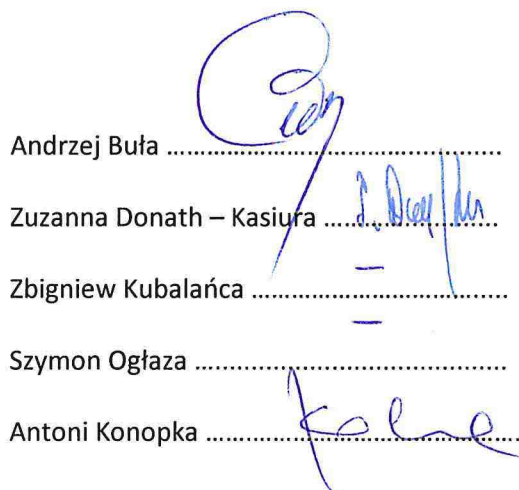 Andrzej Buła ........................................................
Zuzanna Donath – Kasiura ...............................
Zbigniew Kubalańca ...........................................
—
Szymon Ogłaza ....................................................
—
Antoni Konopka ...................................................